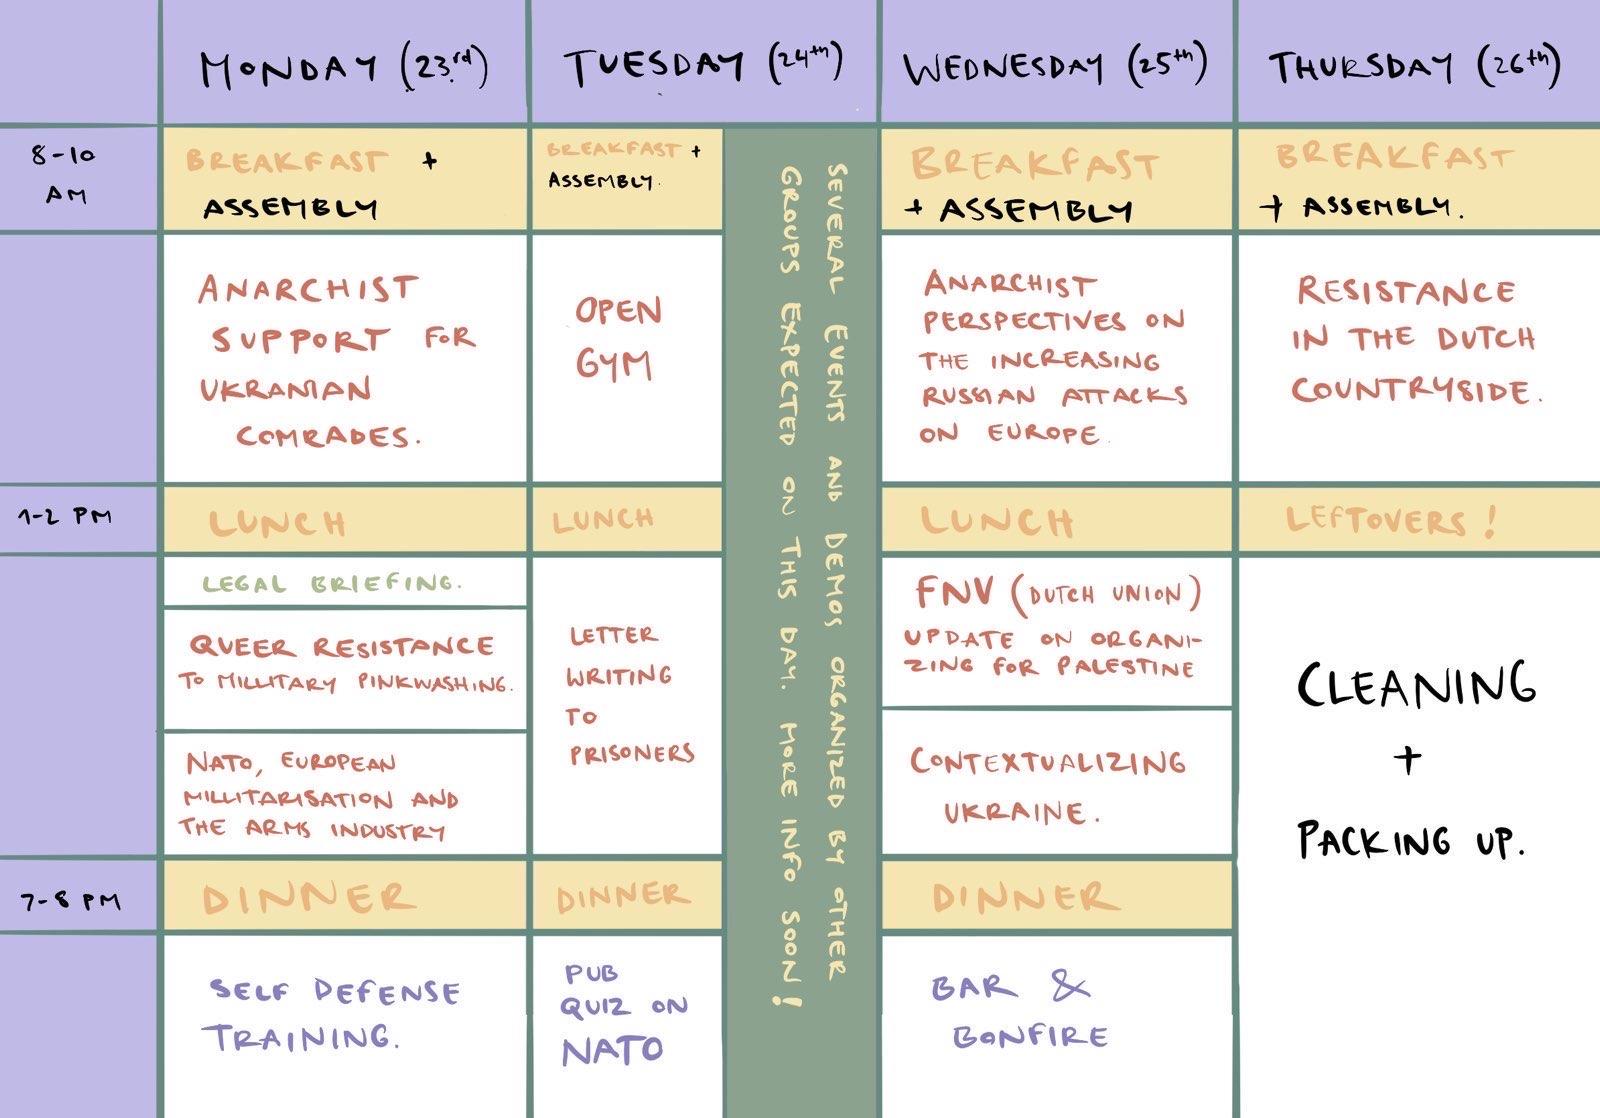 MONDAY (23rd)
TUESDAY (24th)
WEDNESDAY (25th)
THURSDAY (26th)
8-10
AM
BREAKFAST +
ASSEMBLY
BREAKFAST +
ASSEMBLY.
BREAKFAST
+ ASSEMBLY
BREAKFAST
+ ASSEMBLY.
ANARCHIST
SUPPORT FOR
UKRANIAN
COMRADES.
OPEN
GYM
ANARCHIST
PERSPECTIVES ON
THE INCREASING
RUSSIAN ATTACKS
ON EUROPE.
RESISTANCE
IN THE DUTCH
COUNTRYSIDE.
1-2 PM
LUNCH
LUNCH
LUNCH
LEFTOVERS!
LEGAL BRIEFING.
QUEER RESISTANCE
TO MILLITARY PINKWASHING.
NATO, EUROPEAN
MILLITARISATION AND
THE ARMS INDUSTRY
LETTER
WRITING
TO
PRISONERS
FNV (DUTCH UNION)
UPDATE ON ORGANI-
ZING FOR PALESTINE
CONTEXTUALIZING
UKRAINE.
CLEANING
+
PACKING UP.
7-8 PM
DINNER
DINNER
DINNER
SELF DEFENSE
TRAINING.
PUB
QUIZ ON
NATO
BAR &
BONFIRE
SEVERAL EVENTS AND DEMOS ORGANIZED BY OTHER
GROUPS EXPECTED ON THIS DAY. MORE INFO SOON!